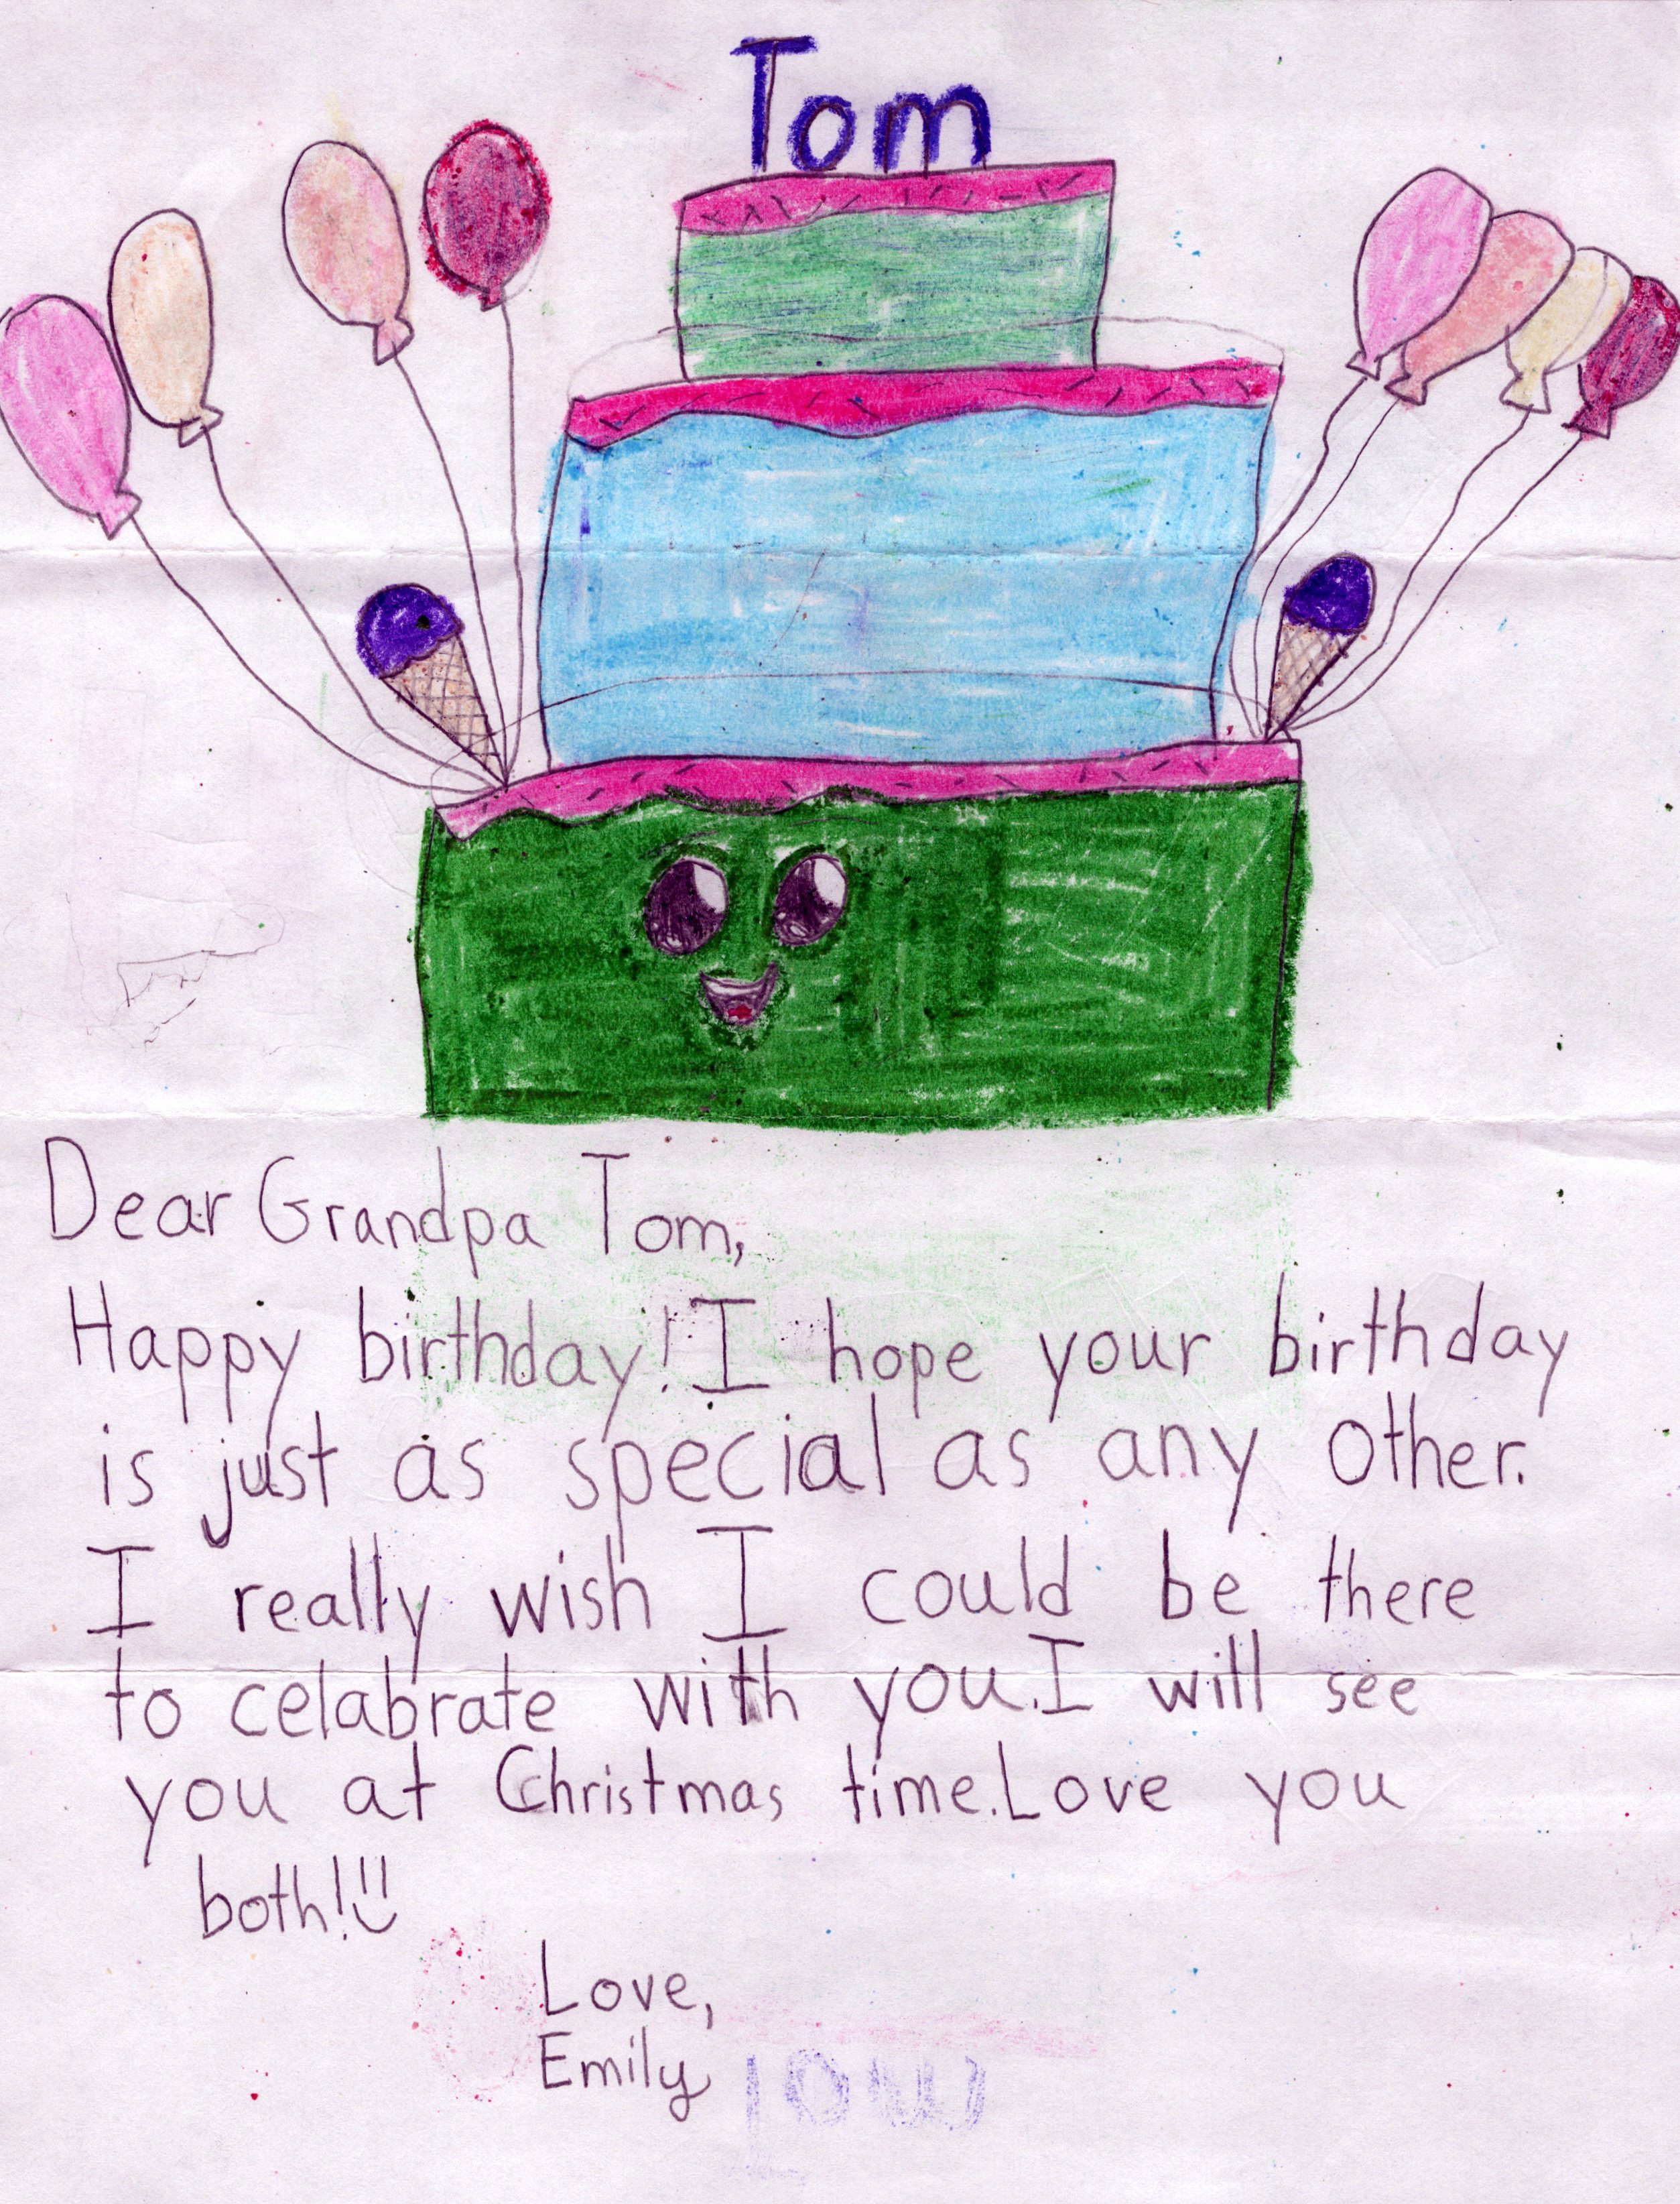 Tom
Dear Grandpa Tom,
Happy birthday! I hope your birthday
is just as special as any other.
I really wish I could be there
to celabrate with you. I will see
you at Christmas time. Love you
both!
Love,
Emily